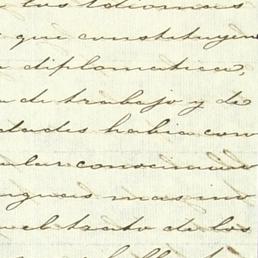 los Idiomas
que constituyen
diplomatica,
de trabajo y de
dades habia con
ular conocimien
enguas mas ino
el trato de los